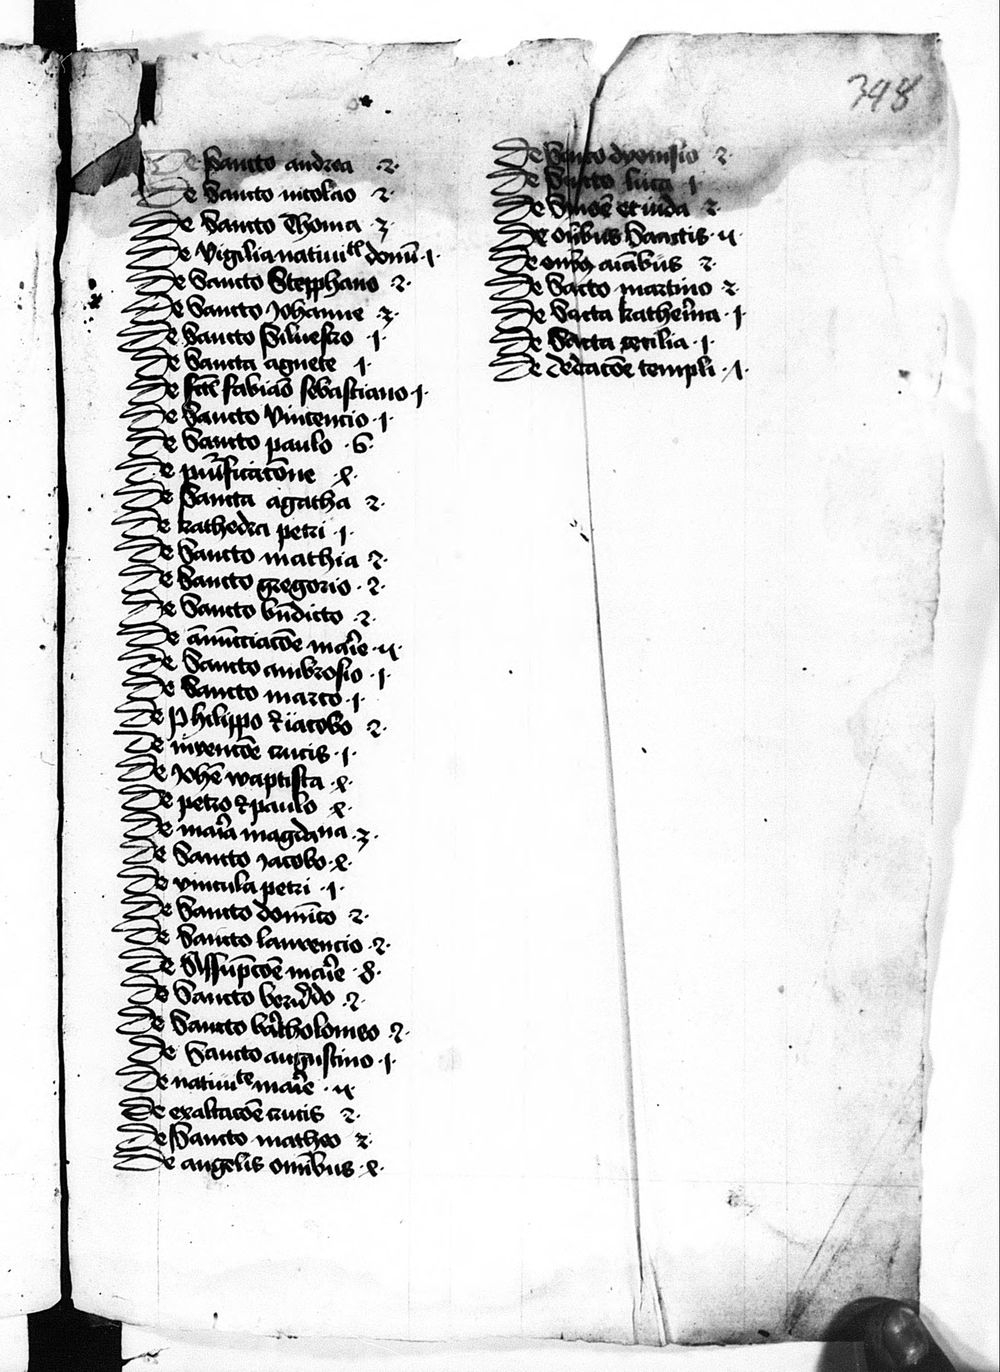 398
De Sancto andrea .2.
De Sancto nicolao 2.
De Sancto Thoma .3
De vigilia natiuitͭ domī .1.
De Sancto Stepphano .2.
De Sancto Johanne .3.
De Sancto Siluestro .1.
De Sancta agnete .1
De sctis fabiāo sebastiano .1.
De Sancto Vincencio .1.
De Sancto paulo .6.
De purificatōne .x.
De Sancta agatha 2.
De kathedra petri .1.
De Sancto mathia 2.
De Sancto gregorio .2.
De Sancto bn̄dicto .2.
De ānūctiacōe marie .11.
De Sancto ambrosio .1.
De Sancto marco .1.
De Philippo ⁊ iacobo 2.
De inuencōe crucis .1.
De Joh̄e waptista .x.
De petro ⁊ paulo .x.
De maria magdana .3.
De Sancto Jacobo .x.
De vincula petri .1.
De Sancto domīco 2.
De Sancto laurencio .2.
De Assūpcōe marie .8.
De Sancto berndo .2.
De Sancto bartholomeo .2.
De Sancto augustino .1
De natiuitͤ marie .11.
De exaltacōe crucis 2.
De Sancto matheo 2.
De angelis omībus .x.
De Sancto dyonisio 2.
De Sancto luca .1
De Simōe et iuda 2.
De oībus Sanctis .11.
De omībus aīabus 2.
De Sācto martino 2.
De Sācta katherina .1.
De Sācta cecilia .1.
De dedicacōe templi .1.